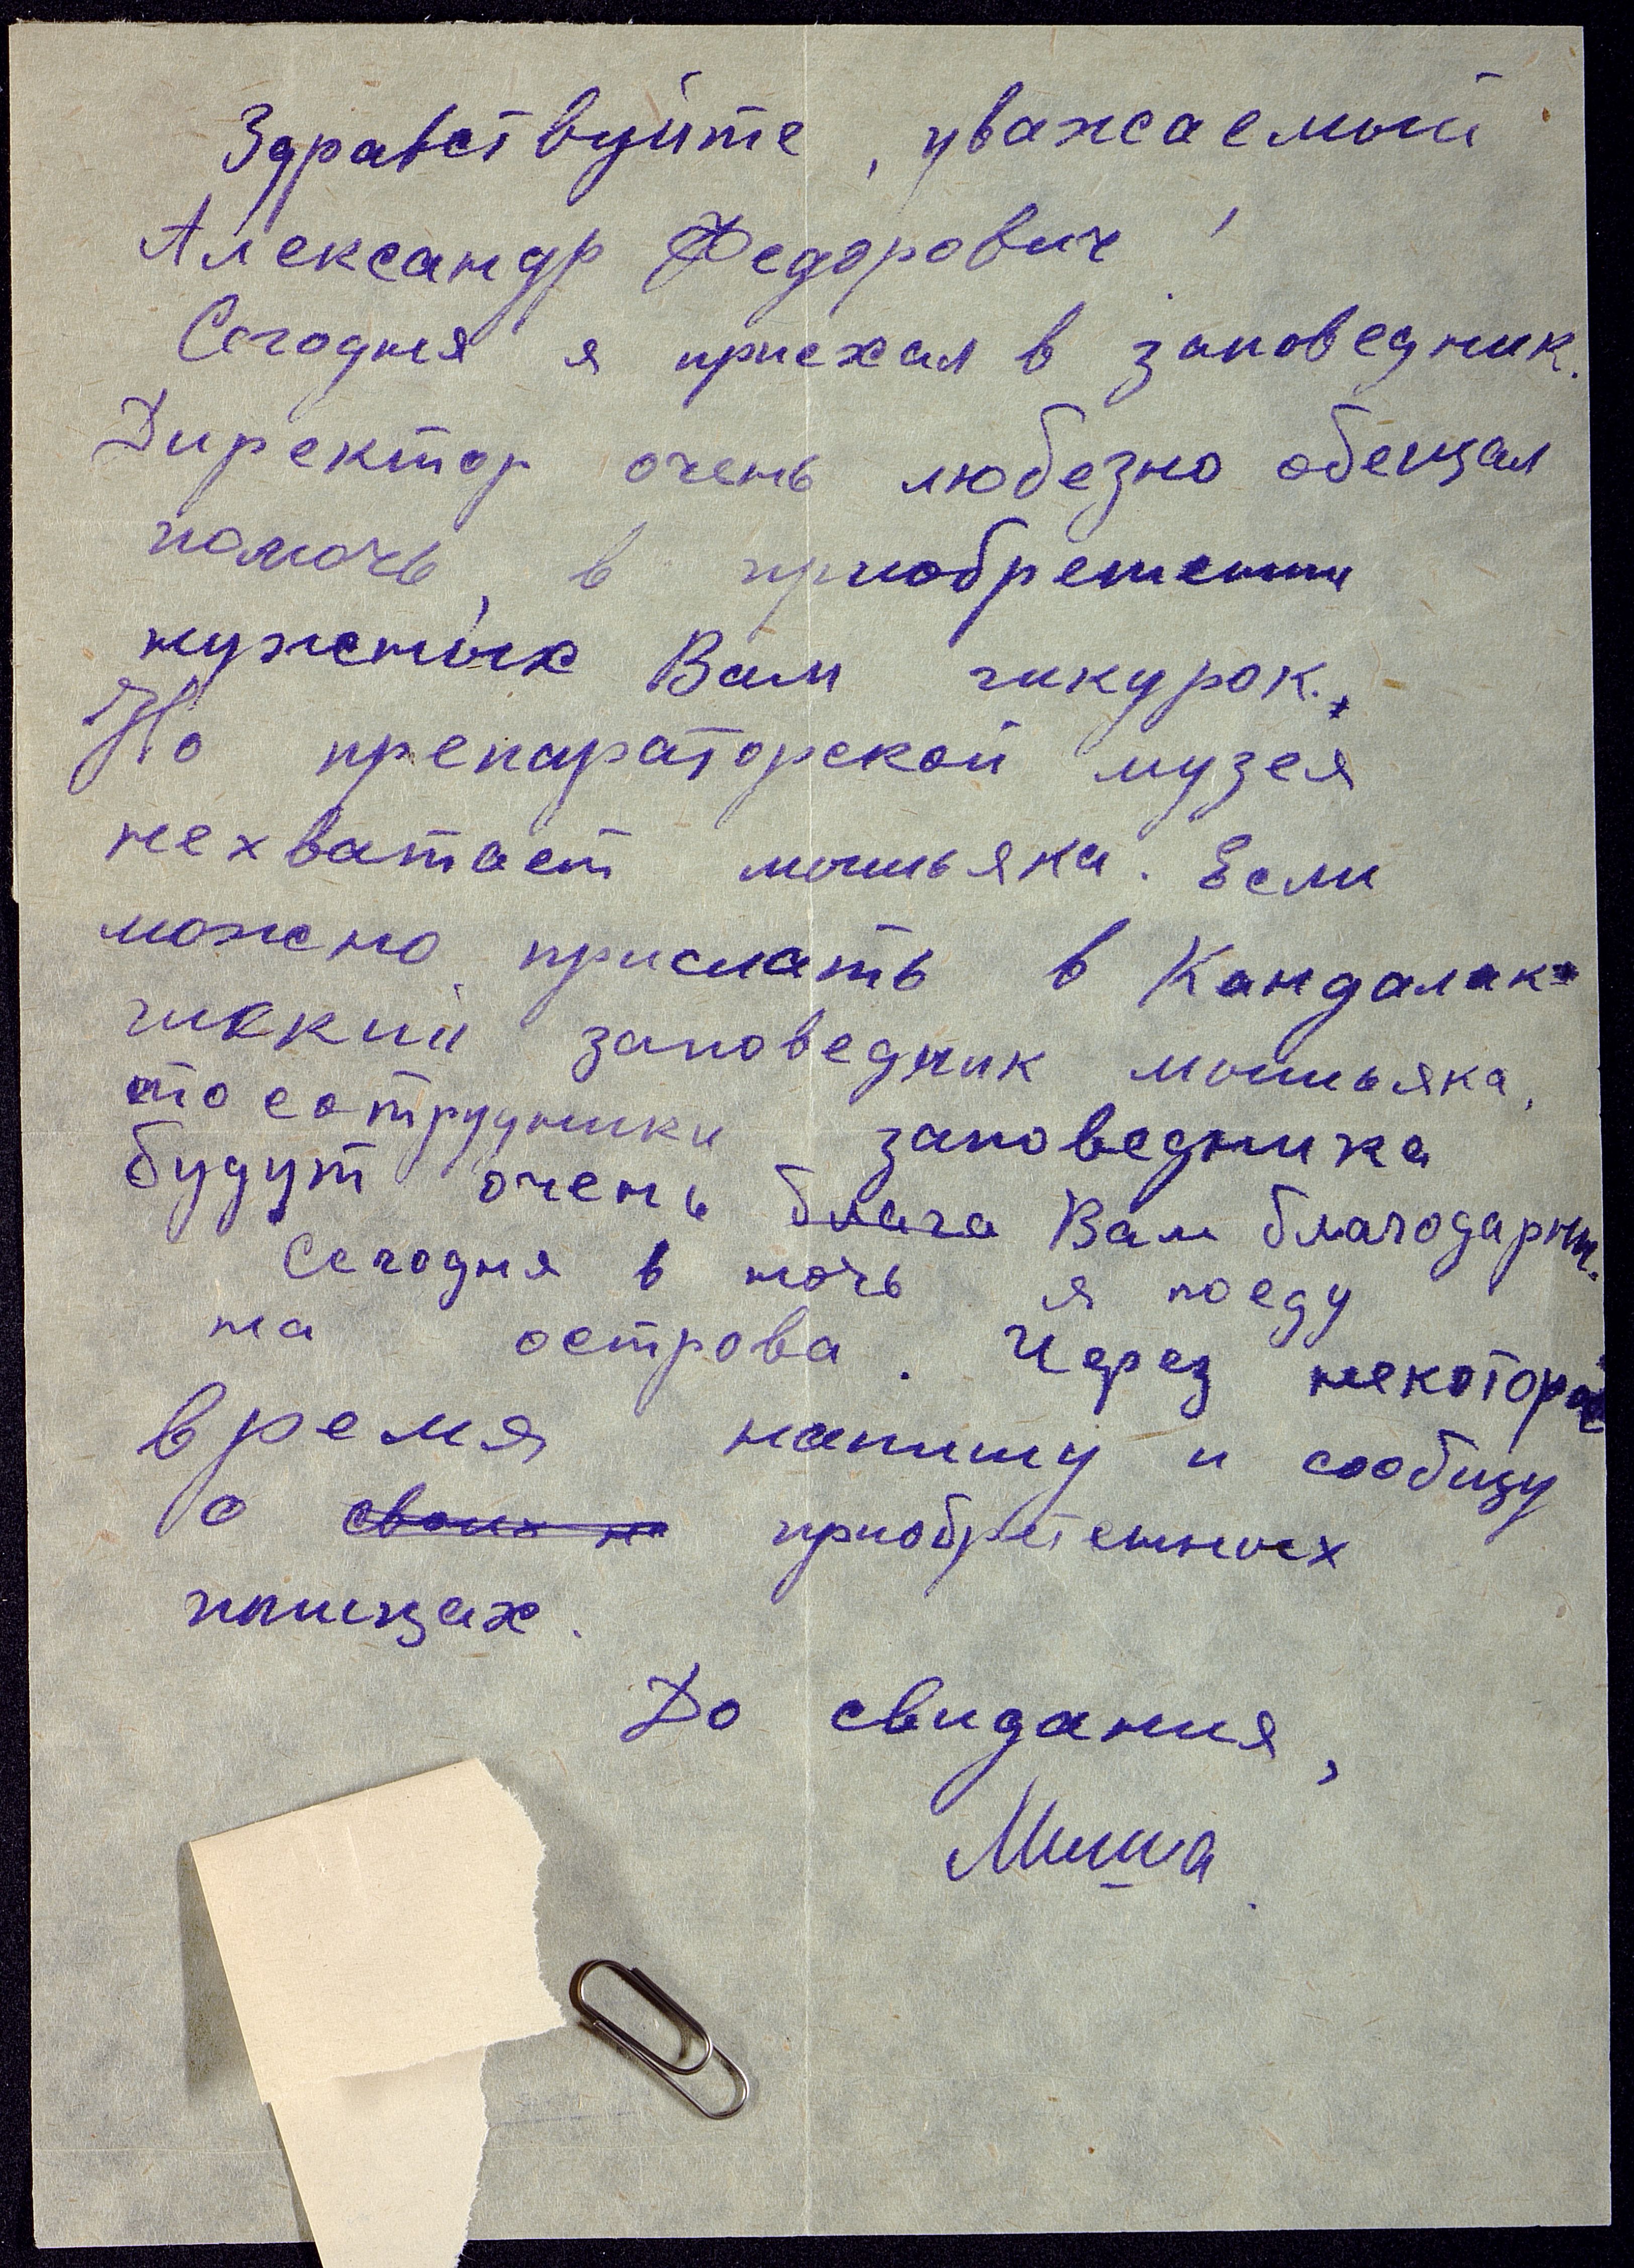 Здравствуйте, уважаемый
Александр Федорович!
Сегодня я приехал в заповедник.
Директор очень любезно обещал
помочь в приобретении
нужных Вам шкурок.
Но препараторской музея
нехватает мышьяка. Если
можно прислать в Кандалак-
шский заповедник мышьяка,
то сотрудники заповедника
будут очень блага Вам благодарны.
Сегодня в ночь я поеду
на острова. Через некоторое
время напишу и сообщу
о своих н приобретенных
птицах.
До свидания,
Миша.